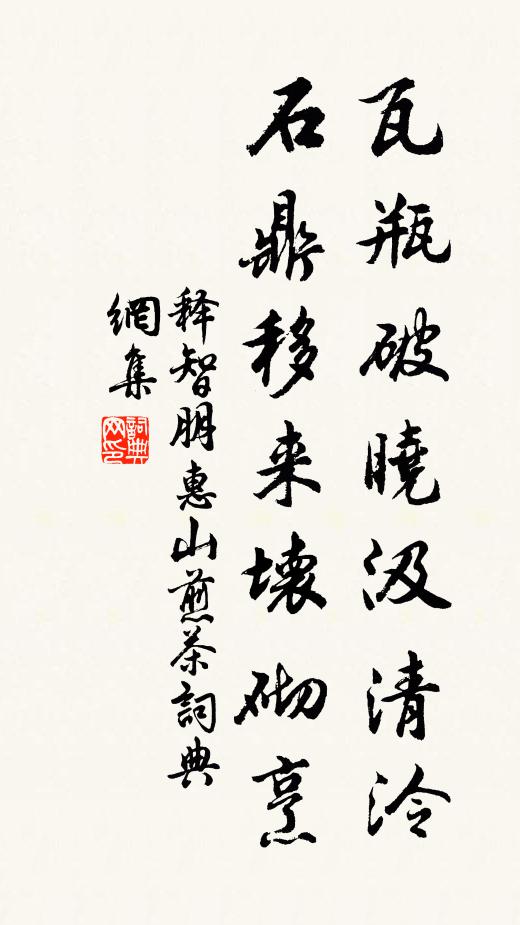 瓦瓶破曉汲清泠
石鼎移来壊砌烹
释智朋惠山煎茶詞典
網集
詞典網印